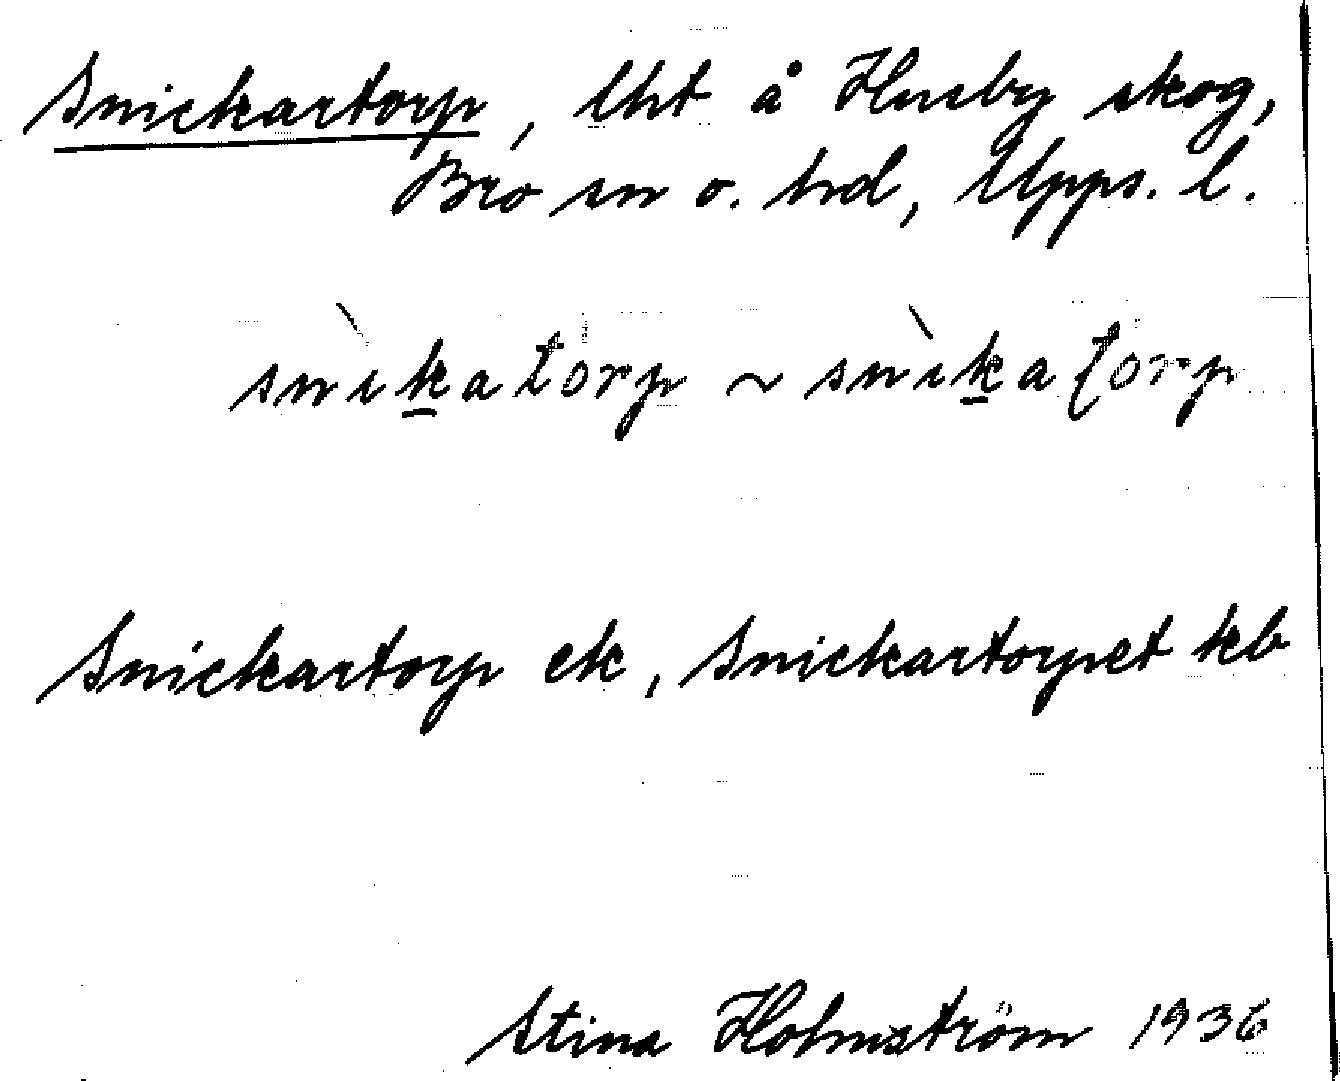 Snickartorp, lht å Husby skog,
Bro sn o. hd, Upps. l.
snìk̲atorp ~ snìk̲aʈorp
Snickartorp ek, Snickartorpet kb
Stina Holmström 1936